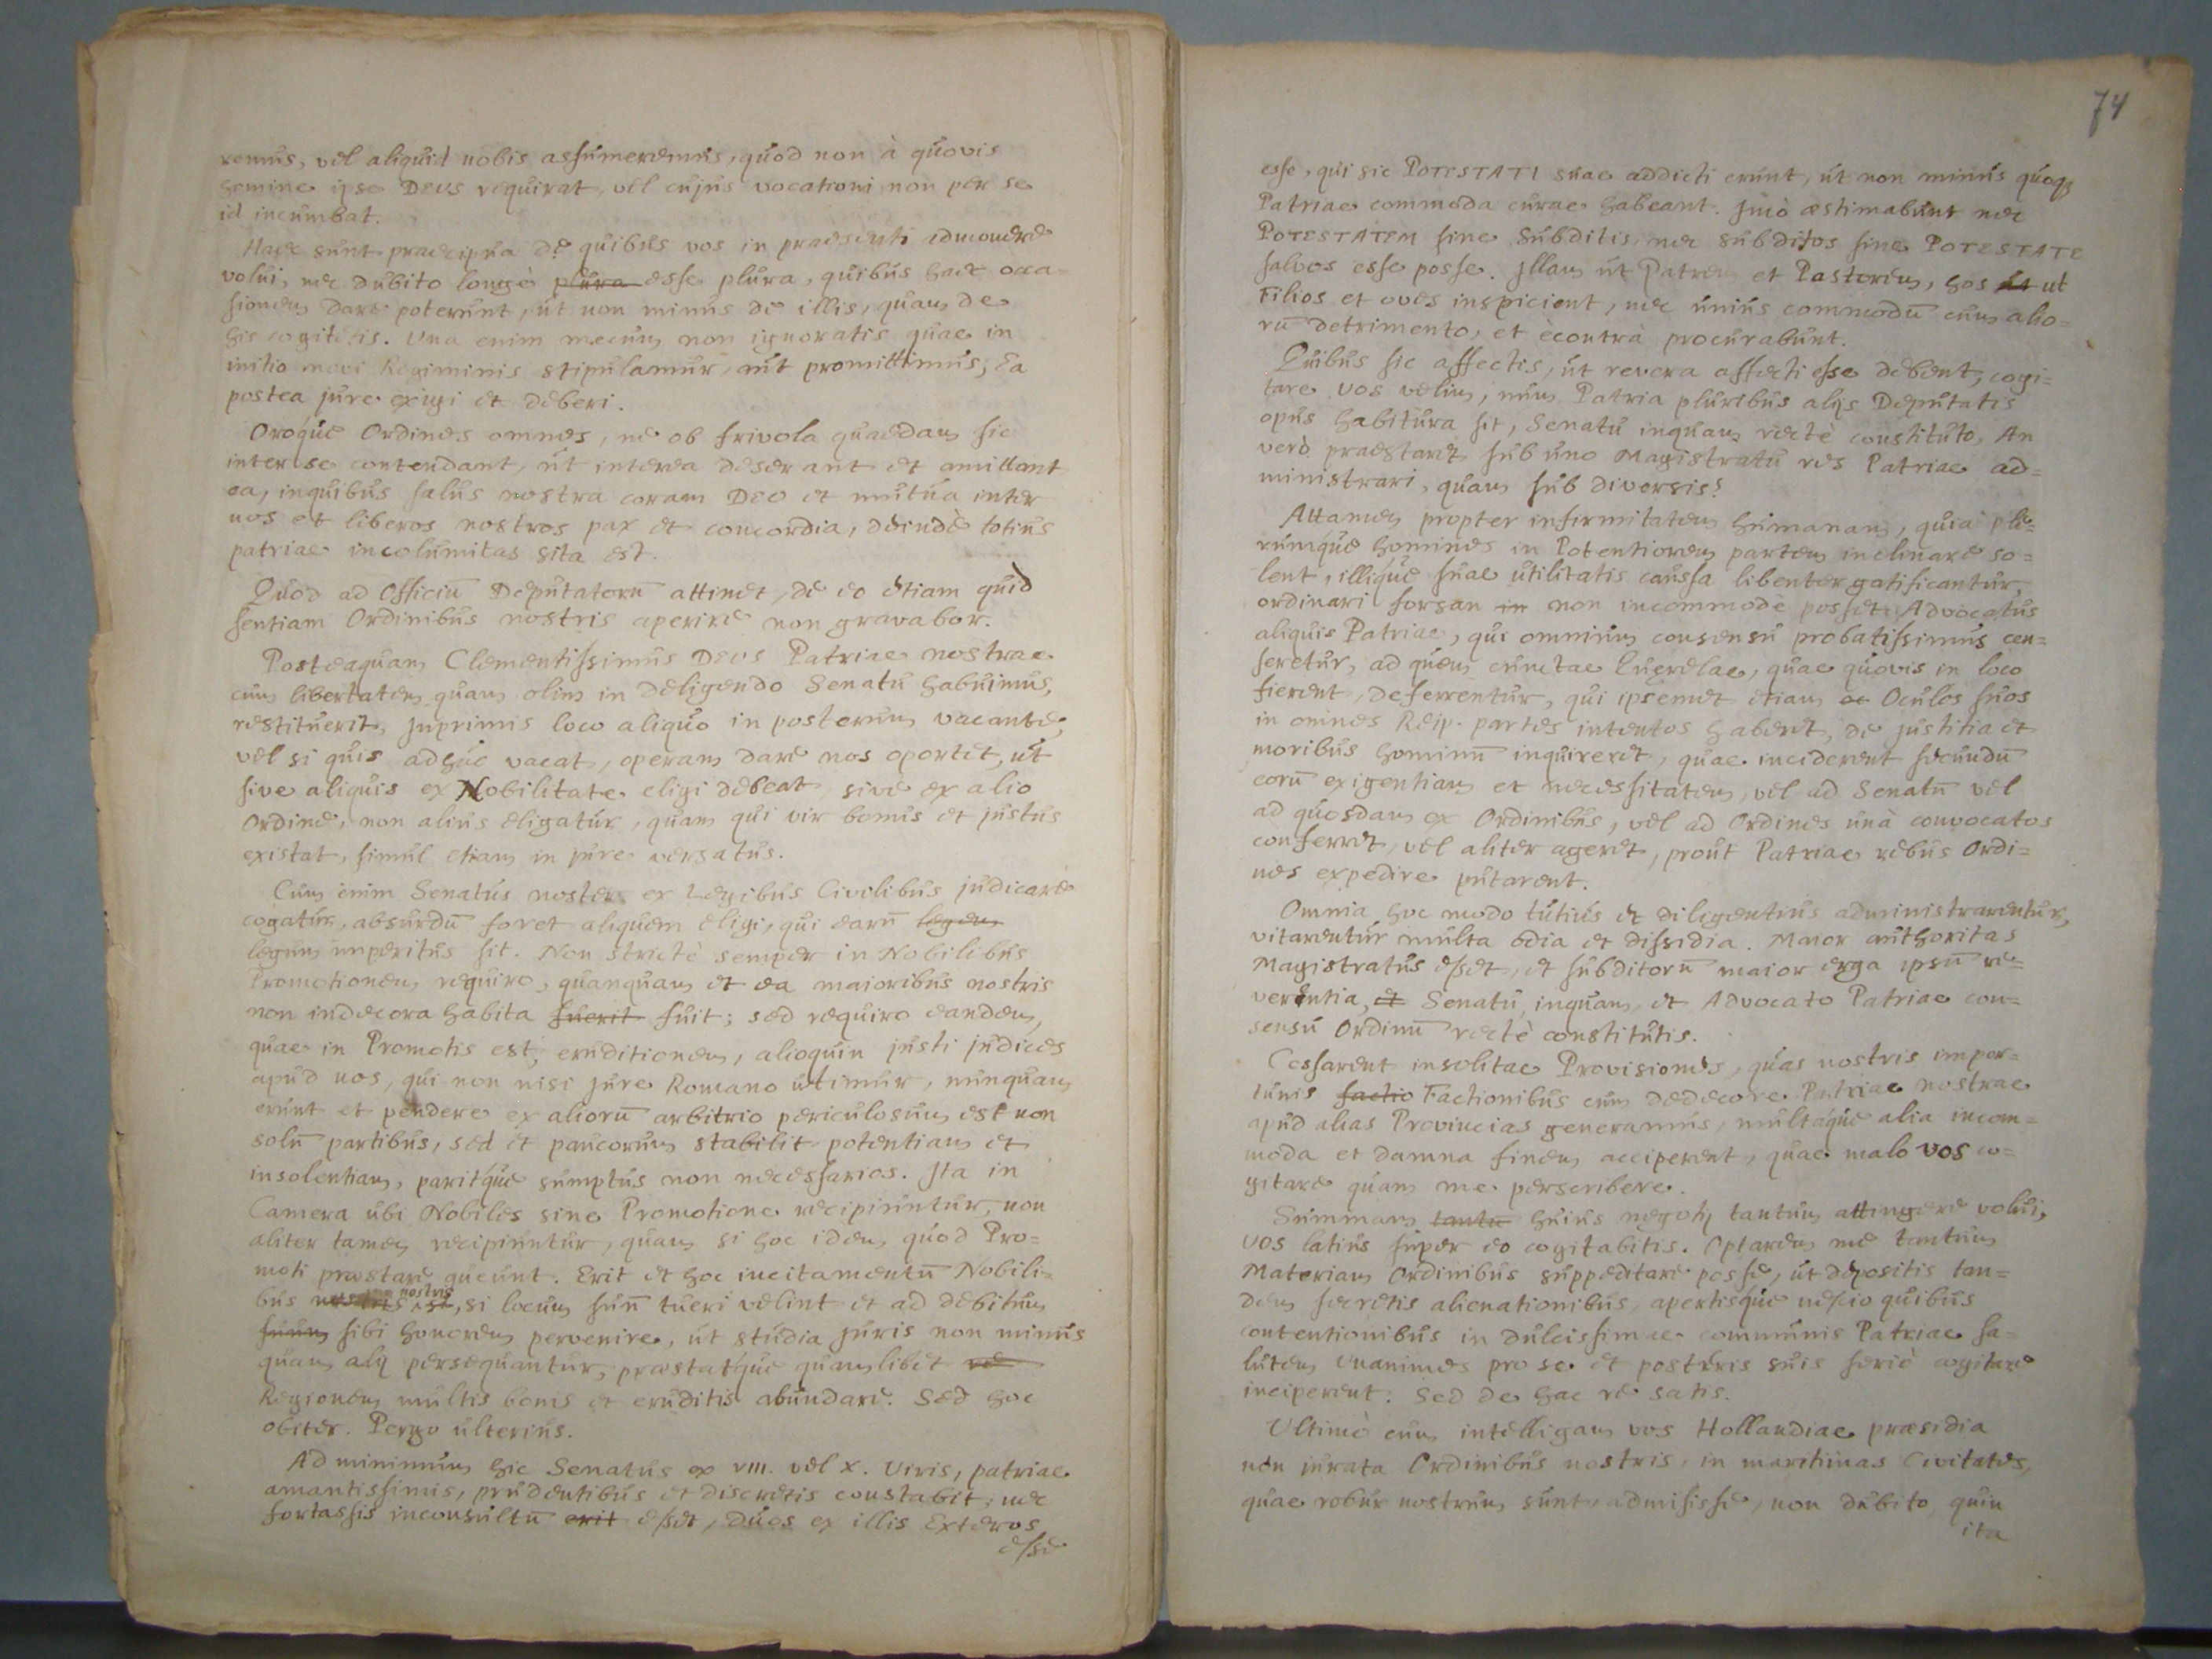 remus, vel aliquid nobis assumeremus, quod non à quovis
homine ipse DEUS requirat, vel cujus vocationi non per se
id incumbat.
Haec sunt praecipua de quibus vos in praesenti admonere
volui, nec dubito longè plura esse plura, quibus haec occa=
sionem dare poterunt, ut non minus de illis, quam de
his cogitetis. Una enim mecum non ignoratis quae in
initio novi Regiminis stipulamur, aut promittimus, Ea
postea jure exigi et deberi.
Oroque Ordines omnes, ne ob frivola quaedam sic
inter se contendant, ut interea deserant et amittant
ea, in quibus salus nostra coram DEO et mutua inter
nos et liberos nostros pax et concordia, deindè totius
patriae incolumitas sita est.
Quod ad Officiū Deputatorū attinet, de eo etiam quid
sentiam Ordinibus nostris aperire non gravabor.
Posteaquam Clementissimus DEUS Patriae nostrae
eum libertatem quam olim in deligendo Senatu habuimus,
restituerit, Inprimis loco aliquo in posterum vacante,
vel si quis adhuc vacat, operam dare nos oportet, ut
sive aliquis ex Nobilitate eligi debeat, sive ex alio
Ordine, non alius eligatur, quam qui vir bonus et justus
existat, simul etiam in jure versatus.
Cum enim Senatus noster ex Legibus Civilibus judicare
cogatur, absurdū foret aliquem eligi, qui earū legem
legum imperitus sit. Non strictè semper in Nobilibus
Promotionem requiro, quanquam et ea maioribus nostris
non indecora habita fuerit fuit; sed requiro eandem,
quae in Promotis est, eruditionem, alioquin justi judices
apud nos, qui non nisi jure Romano utimur, nunquam
erunt et pendere ex aliorū arbitrio periculosum est non
solū partibus, sed et paucorum stabilit potentiam et
insolentiam, paritque sumptus non necessarios. Ita in
Camera ubi Nobiles sine Promotione recipiuntur, non
aliter tamen recipiuntur, quam si hoc idem, quod Pro=
moti praestare queunt. Erit et hoc incitamentū Nobili=
bus nostris est, nostris si locum suū tueri velint et ad debitum
suum sibi honorem pervenire, ut studia juris non minus
quam alij persequantur, praestatque quamlibet re
Regionem multis bonis et eruditis abundare. Sed hoc
obiter. Pergo ulterius.
Ad minimum hic Senatus ex VIII. vel X. Viris, patriae
amantissimis, prudentibus et discretis constabit, nec
fortassis inconsultū erit esset, duos ex illis Exteros
esse
74
esse, qui sic POTESTATI suae addicti erunt, ut non minus quoqȝ
Patriae commoda curae habeant. Imò aestimabunt nec
POTESTATEM sine Subditis, nec subditos sine POTESTATE
salvos esse posse. Illam ut Patrem et Pastorem, hos ut ut
Filios et oves inspicient, nec unius commodū cum alio=
rū detrimento, et ècontrà procurabunt.
Quibus sic affectis, ut revera affecti esse debent, cogi=
tare vos velim, num Patria pluribus alijs Deputatis
opus habitura sit, Senatu inquam rectè constituto, An
verò praestaret sub uno Magistratu res Patriae ad=
ministrari, quam sub diversis?
Attamen propter infirmitatem humanam, quia ple=
rumque homines in Potentiorem partem inclinare so=
lent, illique suae utilitatis caussa libenter gatificantur,
ordinari forsan in non incommodè posset Advocatus
aliquis Patriae, qui omnium consensu probatissimus cen=
seretur, ad quem cunctae Querelae, quae quovis in loco
fierent, deferrentur, qui ipsemet etiam oc Oculos suos
in omnes Reip. partes intentos haberet, de justitia et
moribus hominū inquireret, quae inciderent secundū
eorū exigentiam et necessitatem, vel ad Senatū vel
ad quosdam ex Ordinibus, vel ad Ordines unà convocatos
conferret, vel aliter ageret, prout Patriae rebus Ordi=
nes expedire putarent.
Omnia hoc modo tutius et diligentius administrarentur,
vitarentur multa odia et dissidia. Maior authoritas
Magistratus esset, et subditorū maior erga ipsū re=
verentia, et Senatu, inquam, et Advocato Patriae con=
sensu Ordinū rectè constitutis.
Cessarent insolitae Provisiones, quas nostris impor=
tunis factio Factionibus cum dedecore Patriae nostrae
apud alias Provincias generamus, multaque alia incom=
moda et damna finem acciperent, quae malo vos co=
gitare quam me perscribere.
Summam tantu huius negotij tantum attingere volui,
vos latius super eo cogitabitis. Optarem me tantum
Materiam Ordinibus suppeditare posse, ut depositis tan=
dem secretis alienationibus, apertisque nescio quibus
contentionibus in dulcissimae communis Patriae sa=
lutem Unanimes pro se et posteris suis seriò cogitare
inciperent. Sed de hac re satis.
Ultimò cum intelligam vos Hollandiae praesidia
non jurata Ordinibus nostris, in maritimas Civitates,
quae robur nostrum sunt, admisisse, non dubito, quin
ita